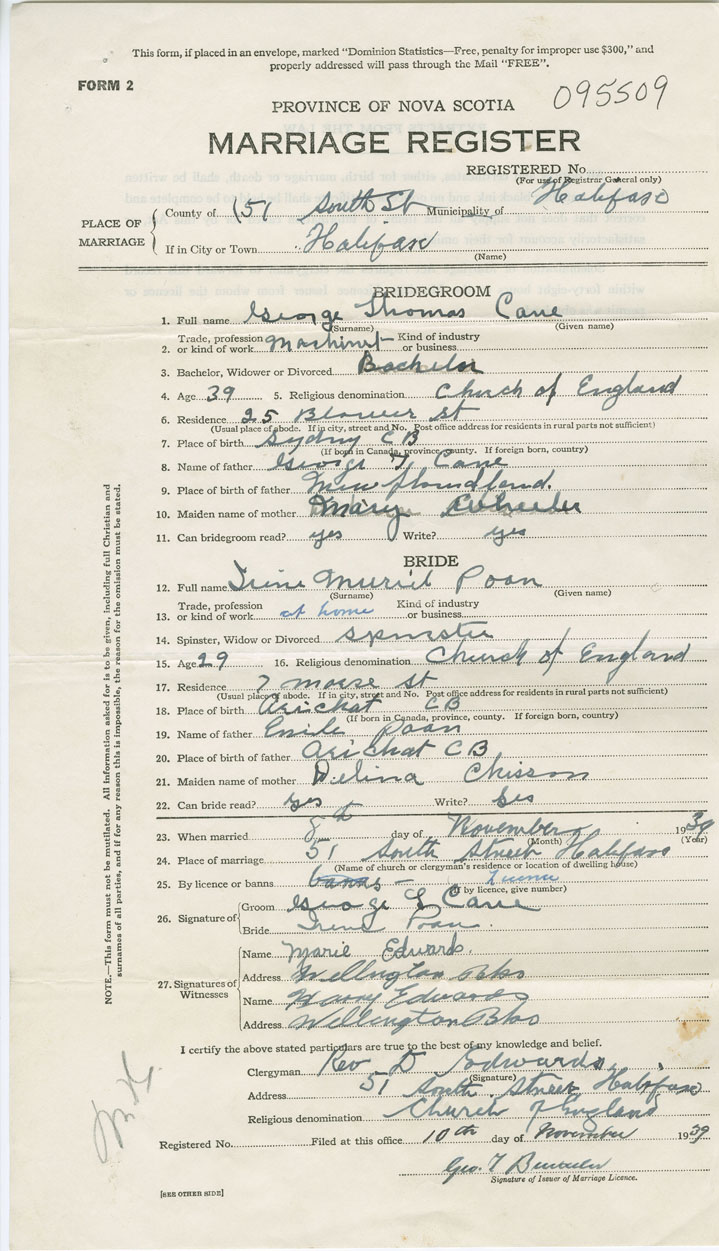 This form, if placed in an envelope, marked "Dominion Statistics—Free, penalty for improper use $300," and
properly addressed will pass through the Mail "FREE".
FORM 2
095509
PROVINCE OF NOVA SCOTIA
MARRIAGE REGISTER
REGISTERED No.
(For use of Registrar General only)
PLACE OF MARRIAGE
County of 51 South St Municipality of Halifax
If in City or Town Halifax
(Name)
BRIDEGROOM
1. Full name George Thomas Cane
(Surname) (Given name)
2. Trade, profession or kind of work Machinist Kind of industry or business
3. Bachelor, Widower or Divorced Bachelor
4. Age 39 5. Religious denomination Church of England
6. Residence 25 Blower St
(Usual place of abode. If in city, street and No. Post office address for residents in rural parts not sufficient)
7. Place of birth Sydny CB
(If born in Canada, province, county. If foreign born, country)
8. Name of father George T Cane
9. Place of birth of father Newfoundland.
10. Maiden name of mother Mary
11. Can bridegroom read? yes Write? yes
BRIDE
12. Full name Irene Muriel Poan
(Surname) (Given name)
13. Trade, profession or kind of work at home Kind of industry or business
14. Spinster, Widow or Divorced Spinster
15. Age 29 16. Religious denomination Church of England
17. Residence 7 morse st
(Usual place of abode. If in city, street and No. Post office address for residents in rural parts not sufficient)
18. Place of birth Arichat CB
(If born in Canada, province, county. If foreign born, country)
19. Name of father Emile Poan
20. Place of birth of father Arichat CB
21. Maiden name of mother Delina Chisson
22. Can bride read? yes Write? yes
23. When married 8th day of November 1939
(Month) (Year)
24. Place of marriage 51 South Street Halifax
(Name of church or clergyman's residence or location of dwelling house)
25. By licence or banns banns - License
(If by licence, give number)
26. Signature of
Groom George T Cane
Bride Irene Poan.
27. Signatures of Witnesses
Name Marie Edwards.
Address Wellington Bks
Name Harry Edwards
Address Wellington Bks
I certify the above stated particulars are true to the best of my knowledge and belief.
Clergyman Rev D Edwards
(Signature)
Address 51 South Street Halifax
Religious denomination Church of England
Registered No. Filed at this office 10th day of November 1939
Geo. T
Signature of Issuer of Marriage Licence.
[SEE OTHER SIDE]
NOTE.—This form must not be mutilated. All information asked for is to be given, including full Christian and
surnames of all parties, and if for any reason this is impossible, the reason for the omission must be stated.